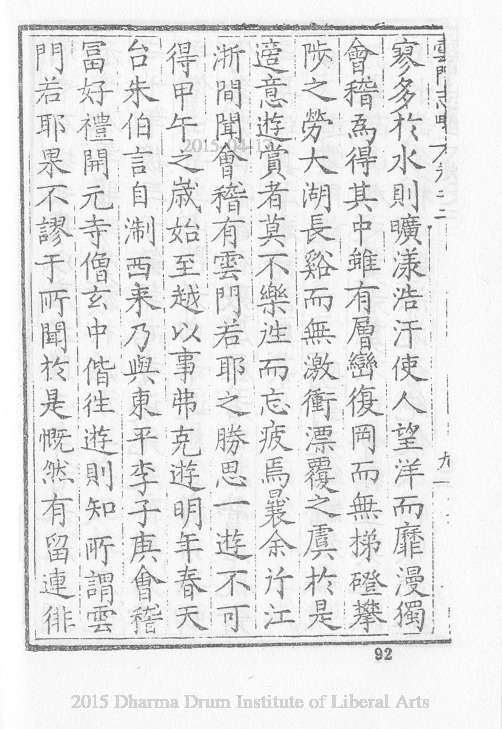 雲門志略 卷之二 九
寥多於水則曠漾浩汗使人望洋而靡漫獨
會稽爲得其中雖有層巒復岡而無梯磴攀
陟之勞大湖長谿而無激衝漂覆之虞於是
適意遊賞者莫不樂往而忘疲焉曩余泝江
浙間聞會稽有雲門若耶之勝思一遊不可
得甲午之歲始至越以事弗克遊明年春天
台朱伯言自制西来乃與東平李子庚會稽
冨好禮開元寺僧玄中偕往遊則知所謂雲
門若耶果不謬于所聞於是慨然有留連徘
2015-04-1
92
2015 Dharma Drum Institute of Liberal Arts